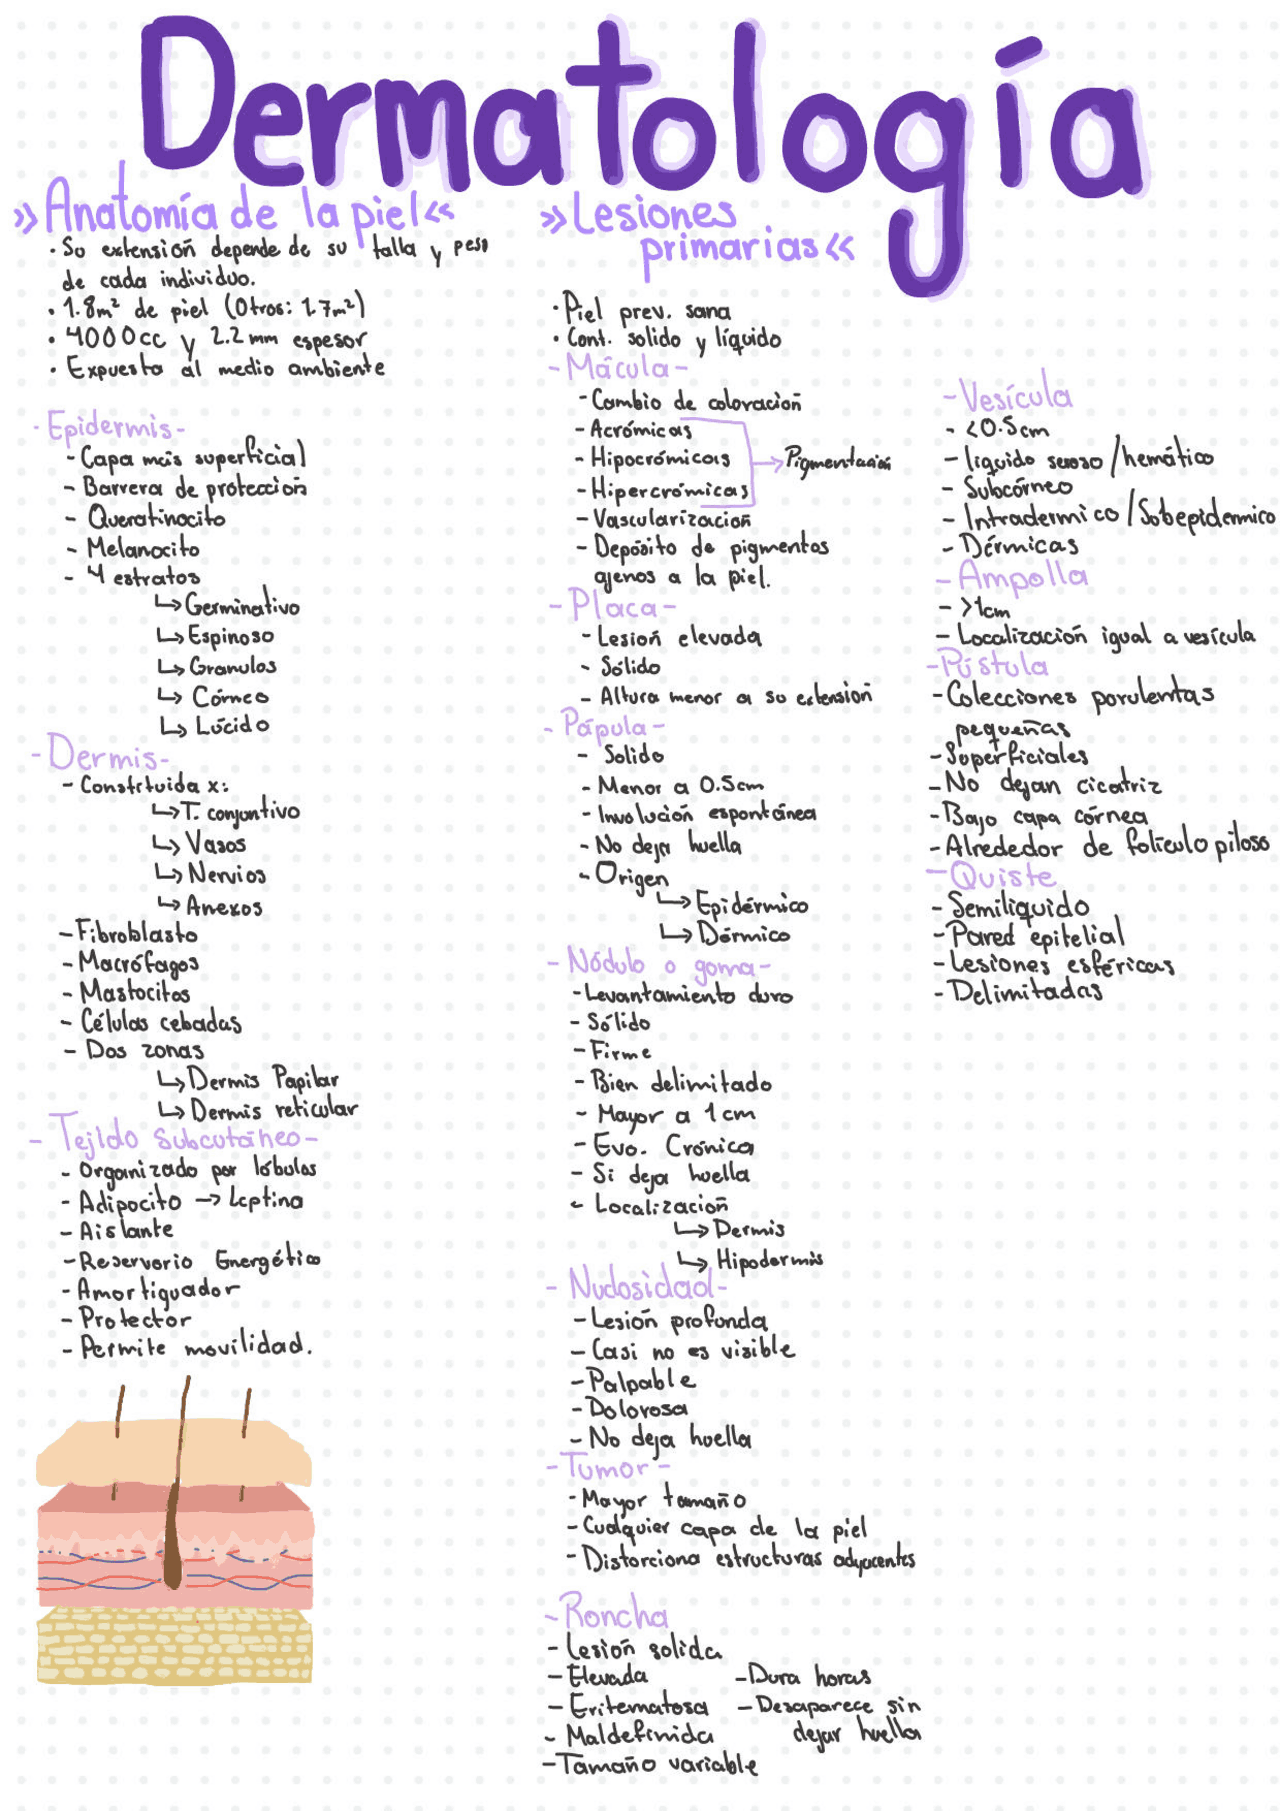 Dermatología
»Anatomía de la piel«
· Su extensión depende de su talla y peso
de cada individuo.
· 1.8m² de piel (Otros: 1.7m²)
· 4000cc y 2.2 mm espesor
· Expuesto al medio ambiente
- Epidermis -
- Capa más superficial
- Barrera de protección
- Queratinocito
- Melanocito
- 4 estratos
↳ Germinativo
↳ Espinoso
↳ Granulos
↳ Córneo
↳ Lúcido
- Dermis -
- Constituida x:
↳ T. conjuntivo
↳ Vasos
↳ Nervios
↳ Anexos
- Fibroblasto
- Macrófagos
- Mastocitos
- Células cebadas
- Dos zonas
↳ Dermis Papilar
↳ Dermis reticular
- TejIdo Subcutáneo -
- Organizado por lóbulos
- Adipocito → Leptina
- Aislante
- Reservorio Energético
- Amortiguador
- Protector
- Permite movilidad.
»Lesiones
primarias«
· Piel prev. sana
· Cont. solido y líquido
- Mácula -
- Cambio de coloración
- Acrómicas
- Hipocrómicas → Pigmentación
- Hipercrómicas
- Vascularización
- Depósito de pigmentos
ajenos a la piel.
- Placa -
- Lesión elevada
- Sólido
- Altura menor a su extensión
- Pápula -
- Solido
- Menor a 0.5cm
- Involución espontánea
- No deja huella
- Origen
↳ Epidérmico
↳ Dérmico
- Nódulo o goma -
- Levantamiento duro
- Sólido
- Firme
- Bien delimitado
- Mayor a 1cm
- Evo. Crónica
- Si deja huella
- Localización
↳ Dermis
↳ Hipodermis
- Nudosidad -
- Lesión profunda
- Casi no es visible
- Palpable
- Dolorosa
- No deja huella
- Tumor -
- Mayor tamaño
- Cualquier capa de la piel
- Distorciona estructuras adyacentes
- Roncha
- Lesión solida
- Elevada
- Eritematosa
- Maldefinida
- Tamaño variable
- Dura horas
- Desaparece sin
dejar huella
- Vesícula
- <0.5cm
- liquido seroso/hemático
- Subcórneo
- Intradermico/Subepidermico
- Dérmicas
- Ampolla
- >1cm
- Localización igual a vesícula
- Pústula
- Colecciones purulentas
pequeñas
- Superficiales
- No dejan cicatriz
- Bajo capa córnea
- Alrededor de folículo piloso
- Quiste
- Semiliquido
- Pared epitelial
- Lesiones esféricas
- Delimitadas